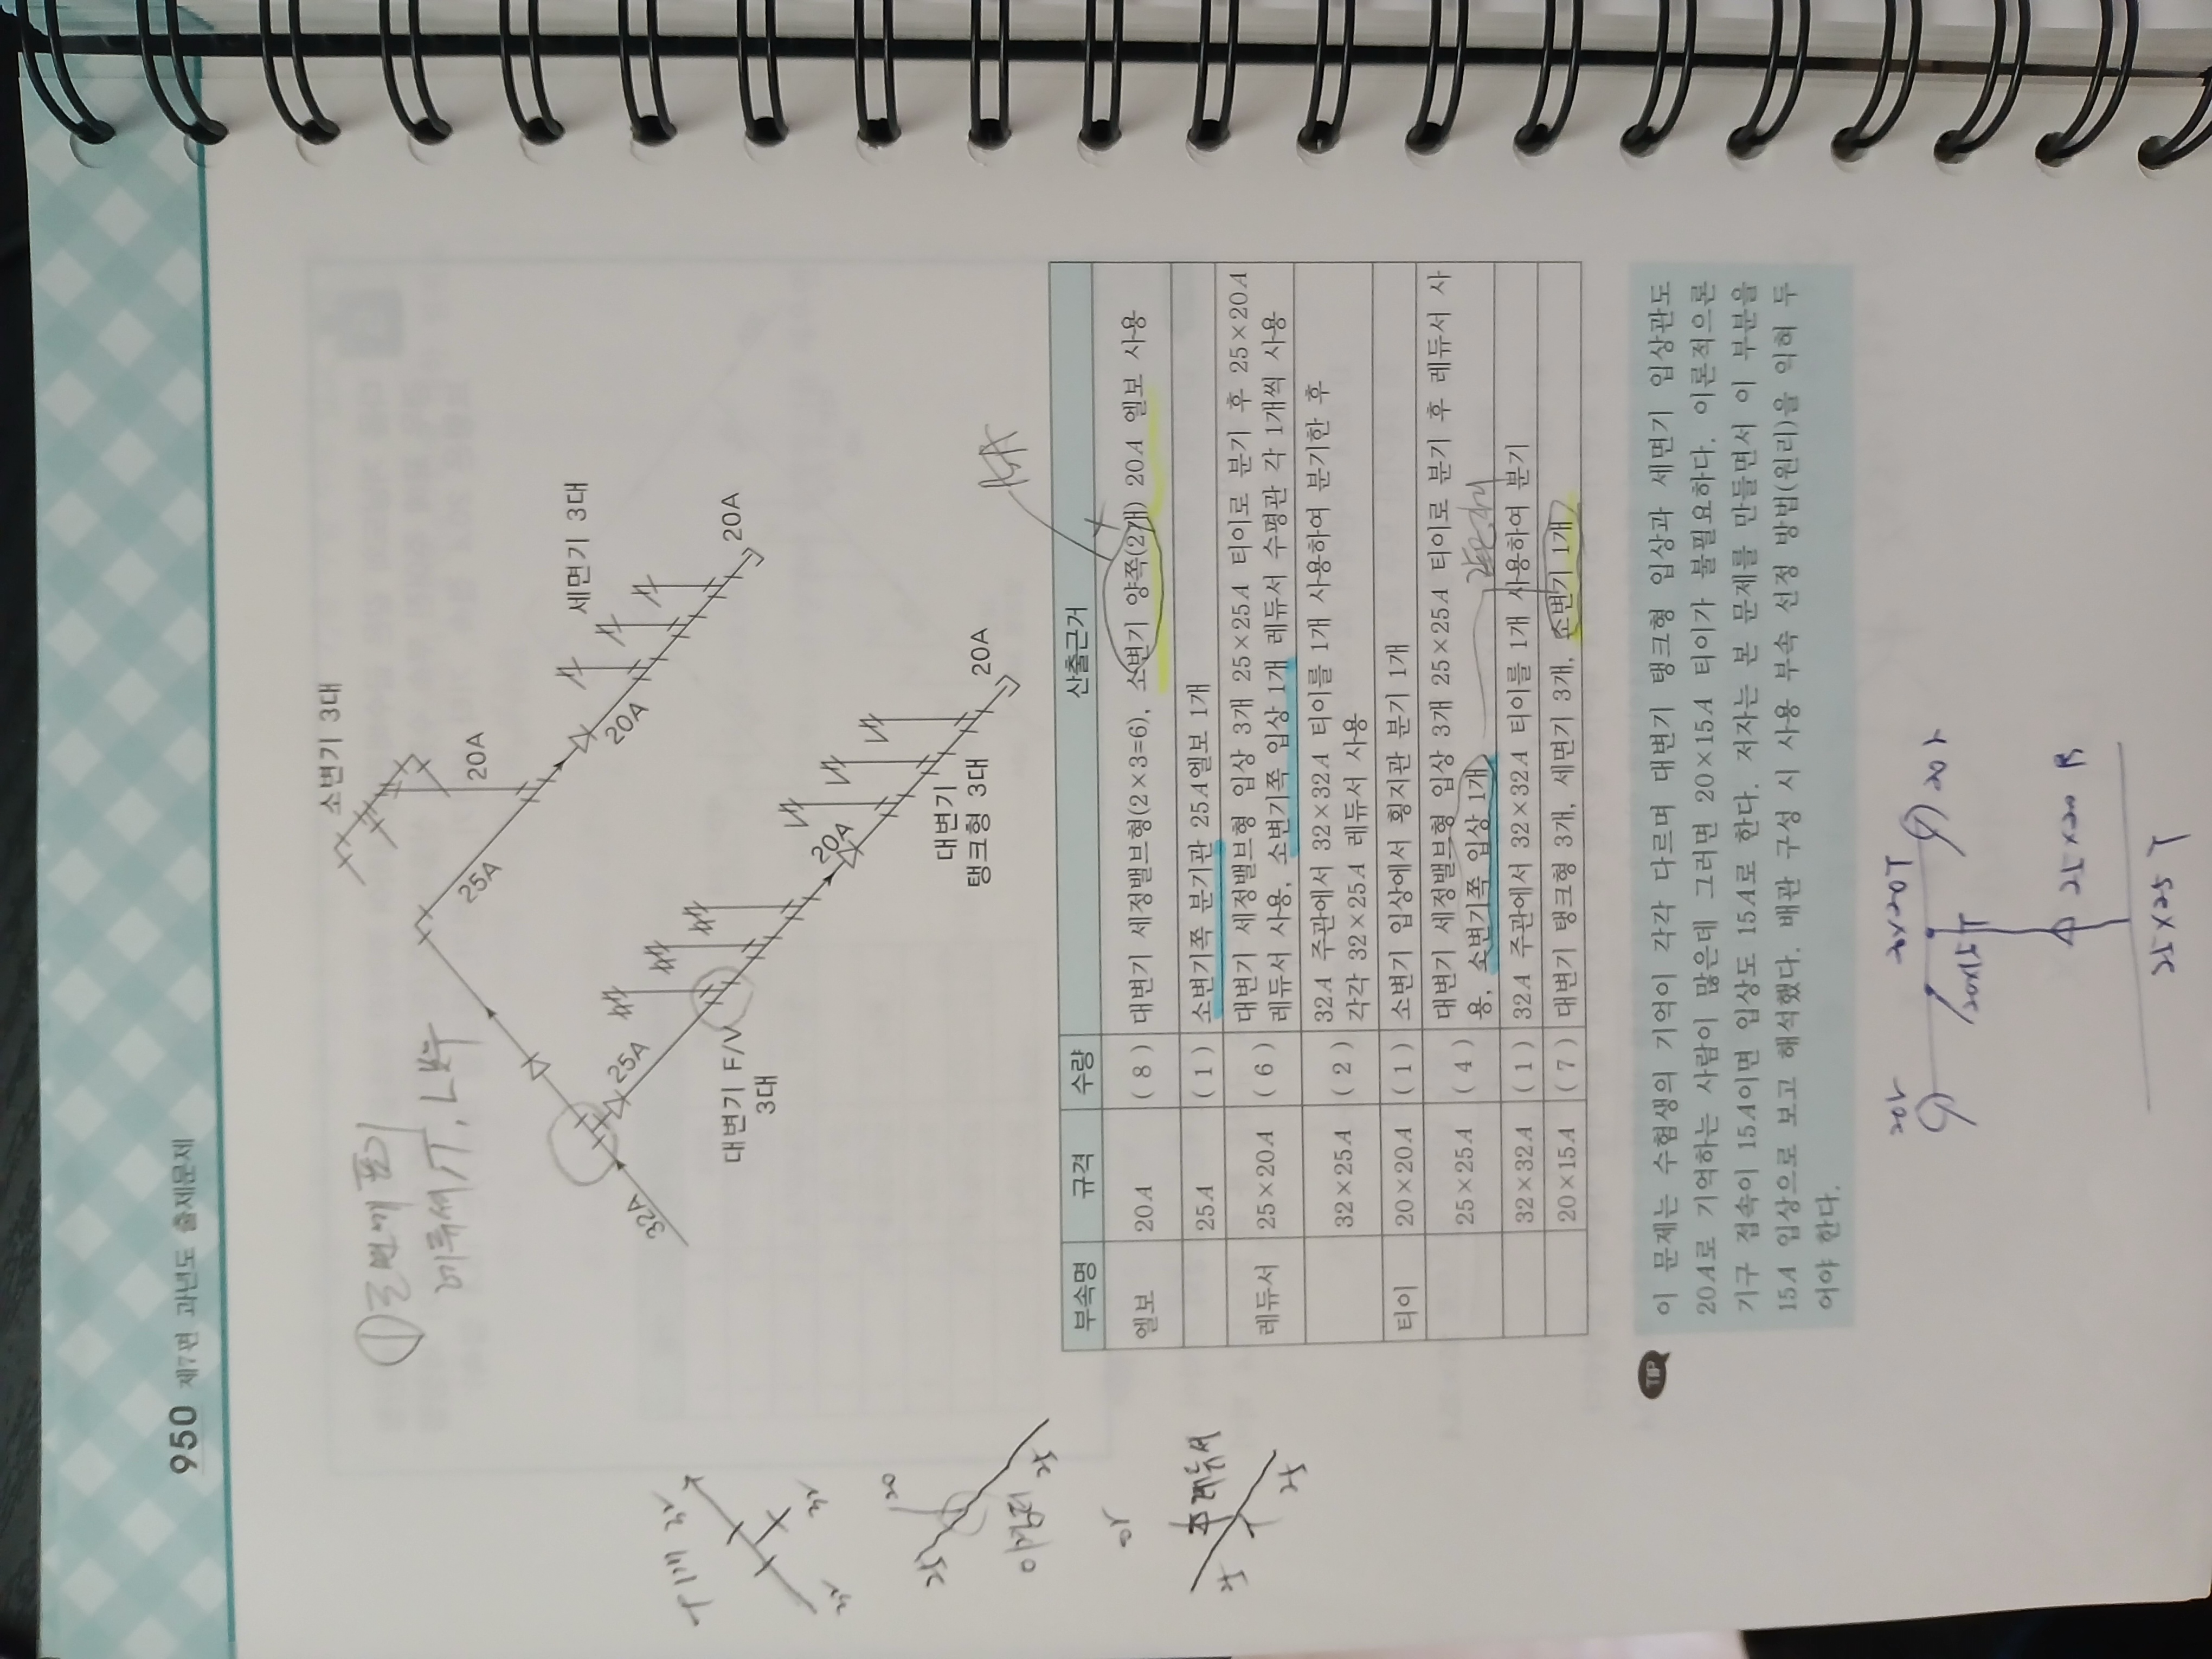 950 제7편 과년도 출제문제
소변기 3대
20A
25A
세면기 3대
20A
20A
32A
25A
대변기 F/V
3대
20A
대변기
탱크형 3대
20A
부속명 규격 수량 산출근거
엘보 20A ( 8 ) 대변기 세정밸브형(2×3=6), 소변기 양쪽(2개) 20A 엘보 사용
25A ( 1 ) 소변기쪽 분기관 25A엘보 1개
레듀서 25×20A ( 6 ) 대변기 세정밸브형 입상 3개 25×25A 티이로 분기 후 25×20A
레듀서 사용, 소변기쪽 입상 1개 레듀서 수평관 각 1개씩 사용
32×25A ( 2 ) 32A 주관에서 32×32A 티이를 1개 사용하여 분기한 후
각각 32×25A 레듀서 사용
티이 20×20A ( 1 ) 소변기 입상에서 횡지관 분기 1개
25×25A ( 4 ) 대변기 세정밸브형 입상 3개 25×25A 티이로 분기 후 레듀서 사
용, 소변기쪽 입상 1개
32×32A ( 1 ) 32A 주관에서 32×32A 티이를 1개 사용하여 분기
20×15A ( 7 ) 대변기 탱크형 3개, 세면기 3개, 소변기 1개
TIP
이 문제는 수험생의 기억이 각각 다르며 대변기 탱크형 입상과 세면기 입상관도
20A로 기억하는 사람이 많은데 그러면 20×15A 티이가 불필요하다. 이론적으론
기구 접속이 15A이면 입상도 15A로 한다. 저자는 본 문제를 만들면서 이 부분을
15A 입상으로 보고 해석했다. 배관 구성 시 사용 부속 선정 방법(원리)을 익혀 두
어야 한다.
20
25
25
or
레듀서
25
25
20×15T
25×20 R
25×25 T